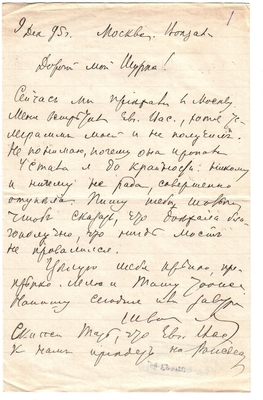 9 Дек 95 г. Москва. Вокзал
Дорогой мой Шурка!
Сейчас мы приехали в Москву.
Меня встретил Евг. Ис., хотя те-
леграммы моей и не получил.
Не понимаю, почему она пропала.
Устала я до крайности: никому
и ничему не рада, совершенно
отупела. Пишу тебе только,
чтоб сказать, что доехала бла-
гополучно, что нигде мост
не провалился.
Целую тебя крепко, пре-
крепко. Лелю и Ташу
Напишу сегодня или завтра
Скажи что Евг.
к нам приедет на